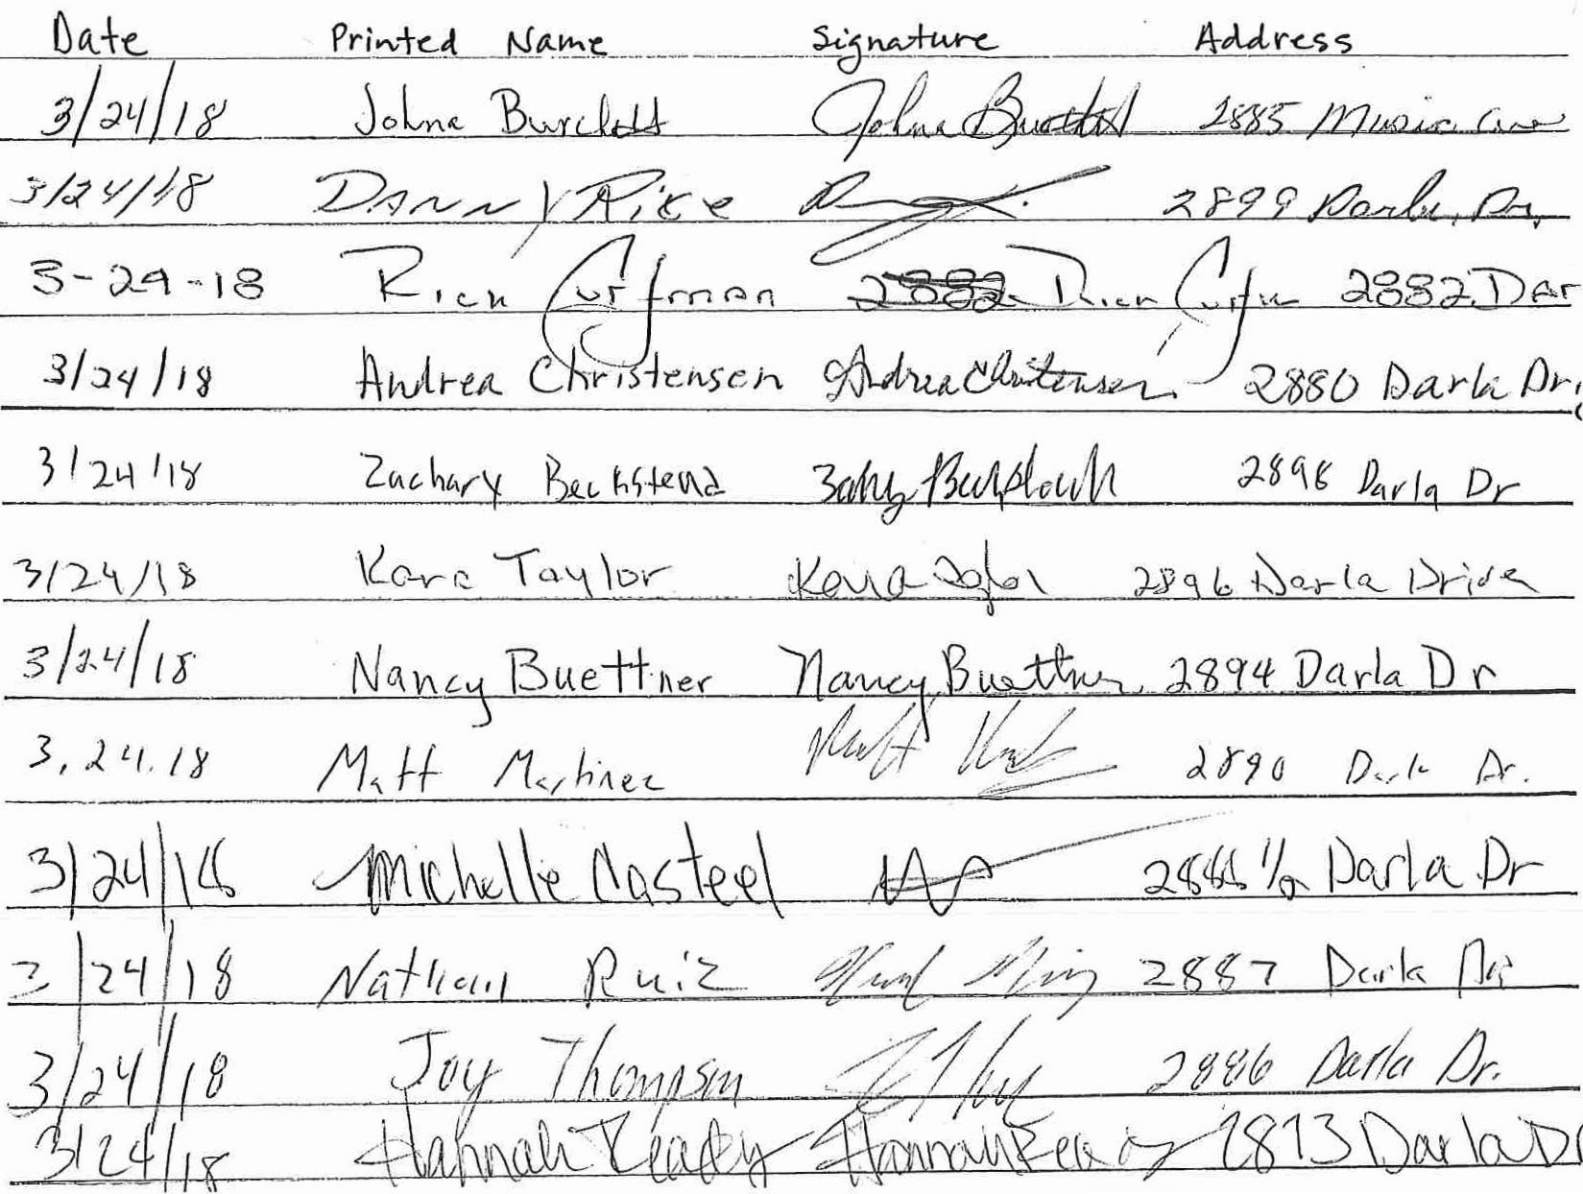 Date Printed Name Signature Address
3/24/18 Johna Burchett Johna Burchett 2885 Music Ave
3/24/18 Danny Rice 2899 Darla Dr.
3-24-18 Rick Curfman 2882 Rick 2882 Dar
3/24/18 Andrea Christensen Andrea Christensen 2880 Darla Dr.
3/24/18 Zachary Beckstead 2898 Darla Dr
3/24/18 Kara Taylor Kara Taylor 2896 Darla Drive
3/24/18 Nancy Buettner Nancy Buettner 2894 Darla Dr
3.24.18 Matt Martinez Matt 2890 Darla Dr.
3/24/18 Michelle Casteel 1/2 Darla Dr
3/24/18 Nathan Ruiz 2887 Darla Dr
3/24/18 Joy Thompson 2886 Darla Dr.
3/24/18 Hannah Ready Hannah Ready 2873 Darla Dr